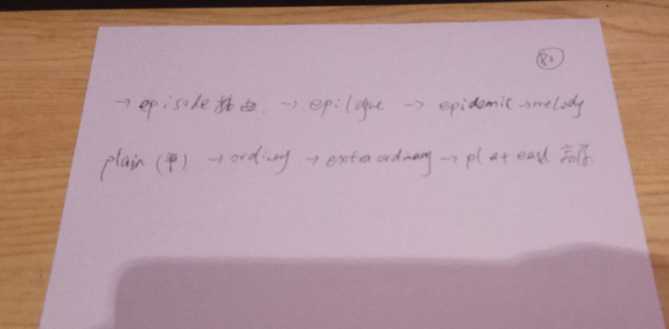 → episode 插曲 → epilogue → epidemic → melody
plain (平) → ordinary → extraordinary → plateau 高原